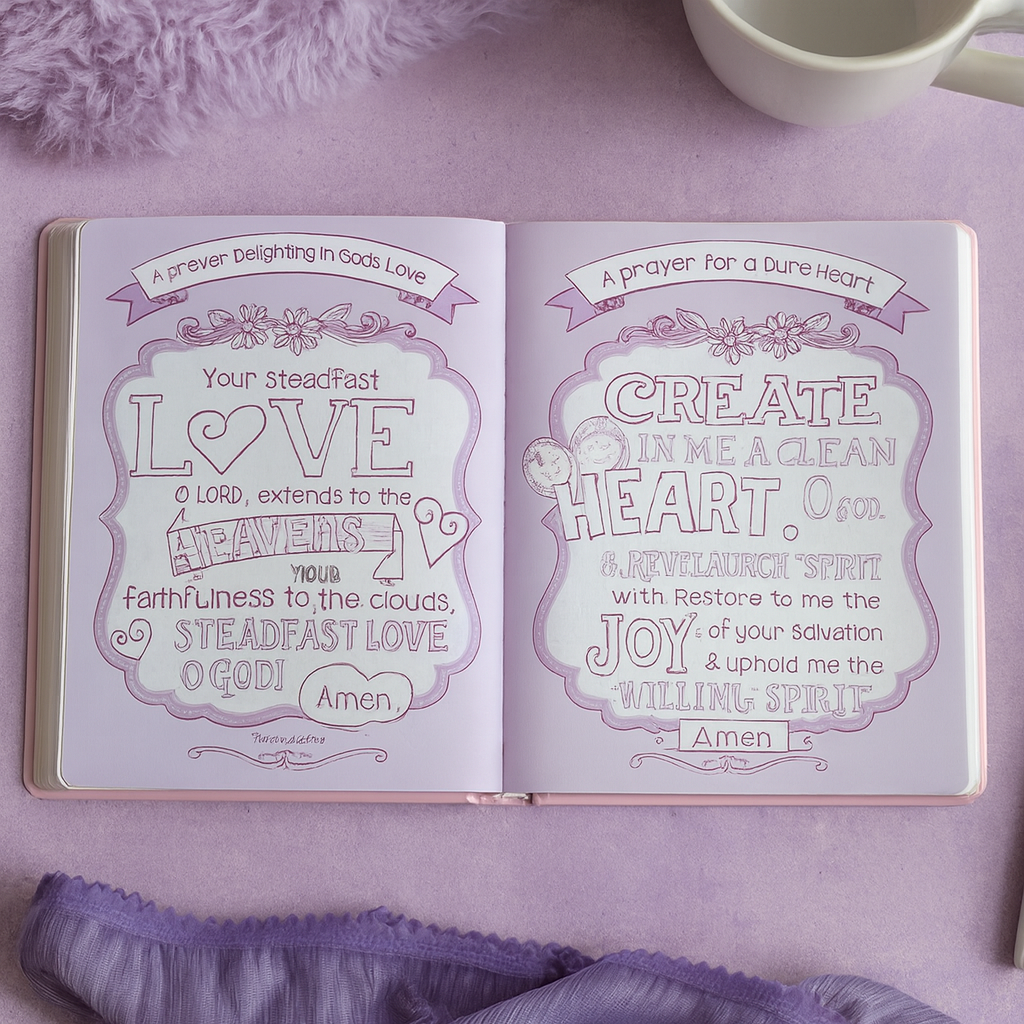 A prever Delighting In Gods Love
Your steadfast
LOVE
O LORD, extends to the
HEAVENS
YOUR
faithfulness to, the clouds,
STEADFAST LOVE
O GODI
Amen,
A prayer for a Dure Heart
CREATE
IN ME A CLEAN
HEART. O GOD.
& REVELAURCH "SPIRIT
with Restore to me the
JOY & of your salvation
& uphold me the
"WILLING" SPIRIT
Amen